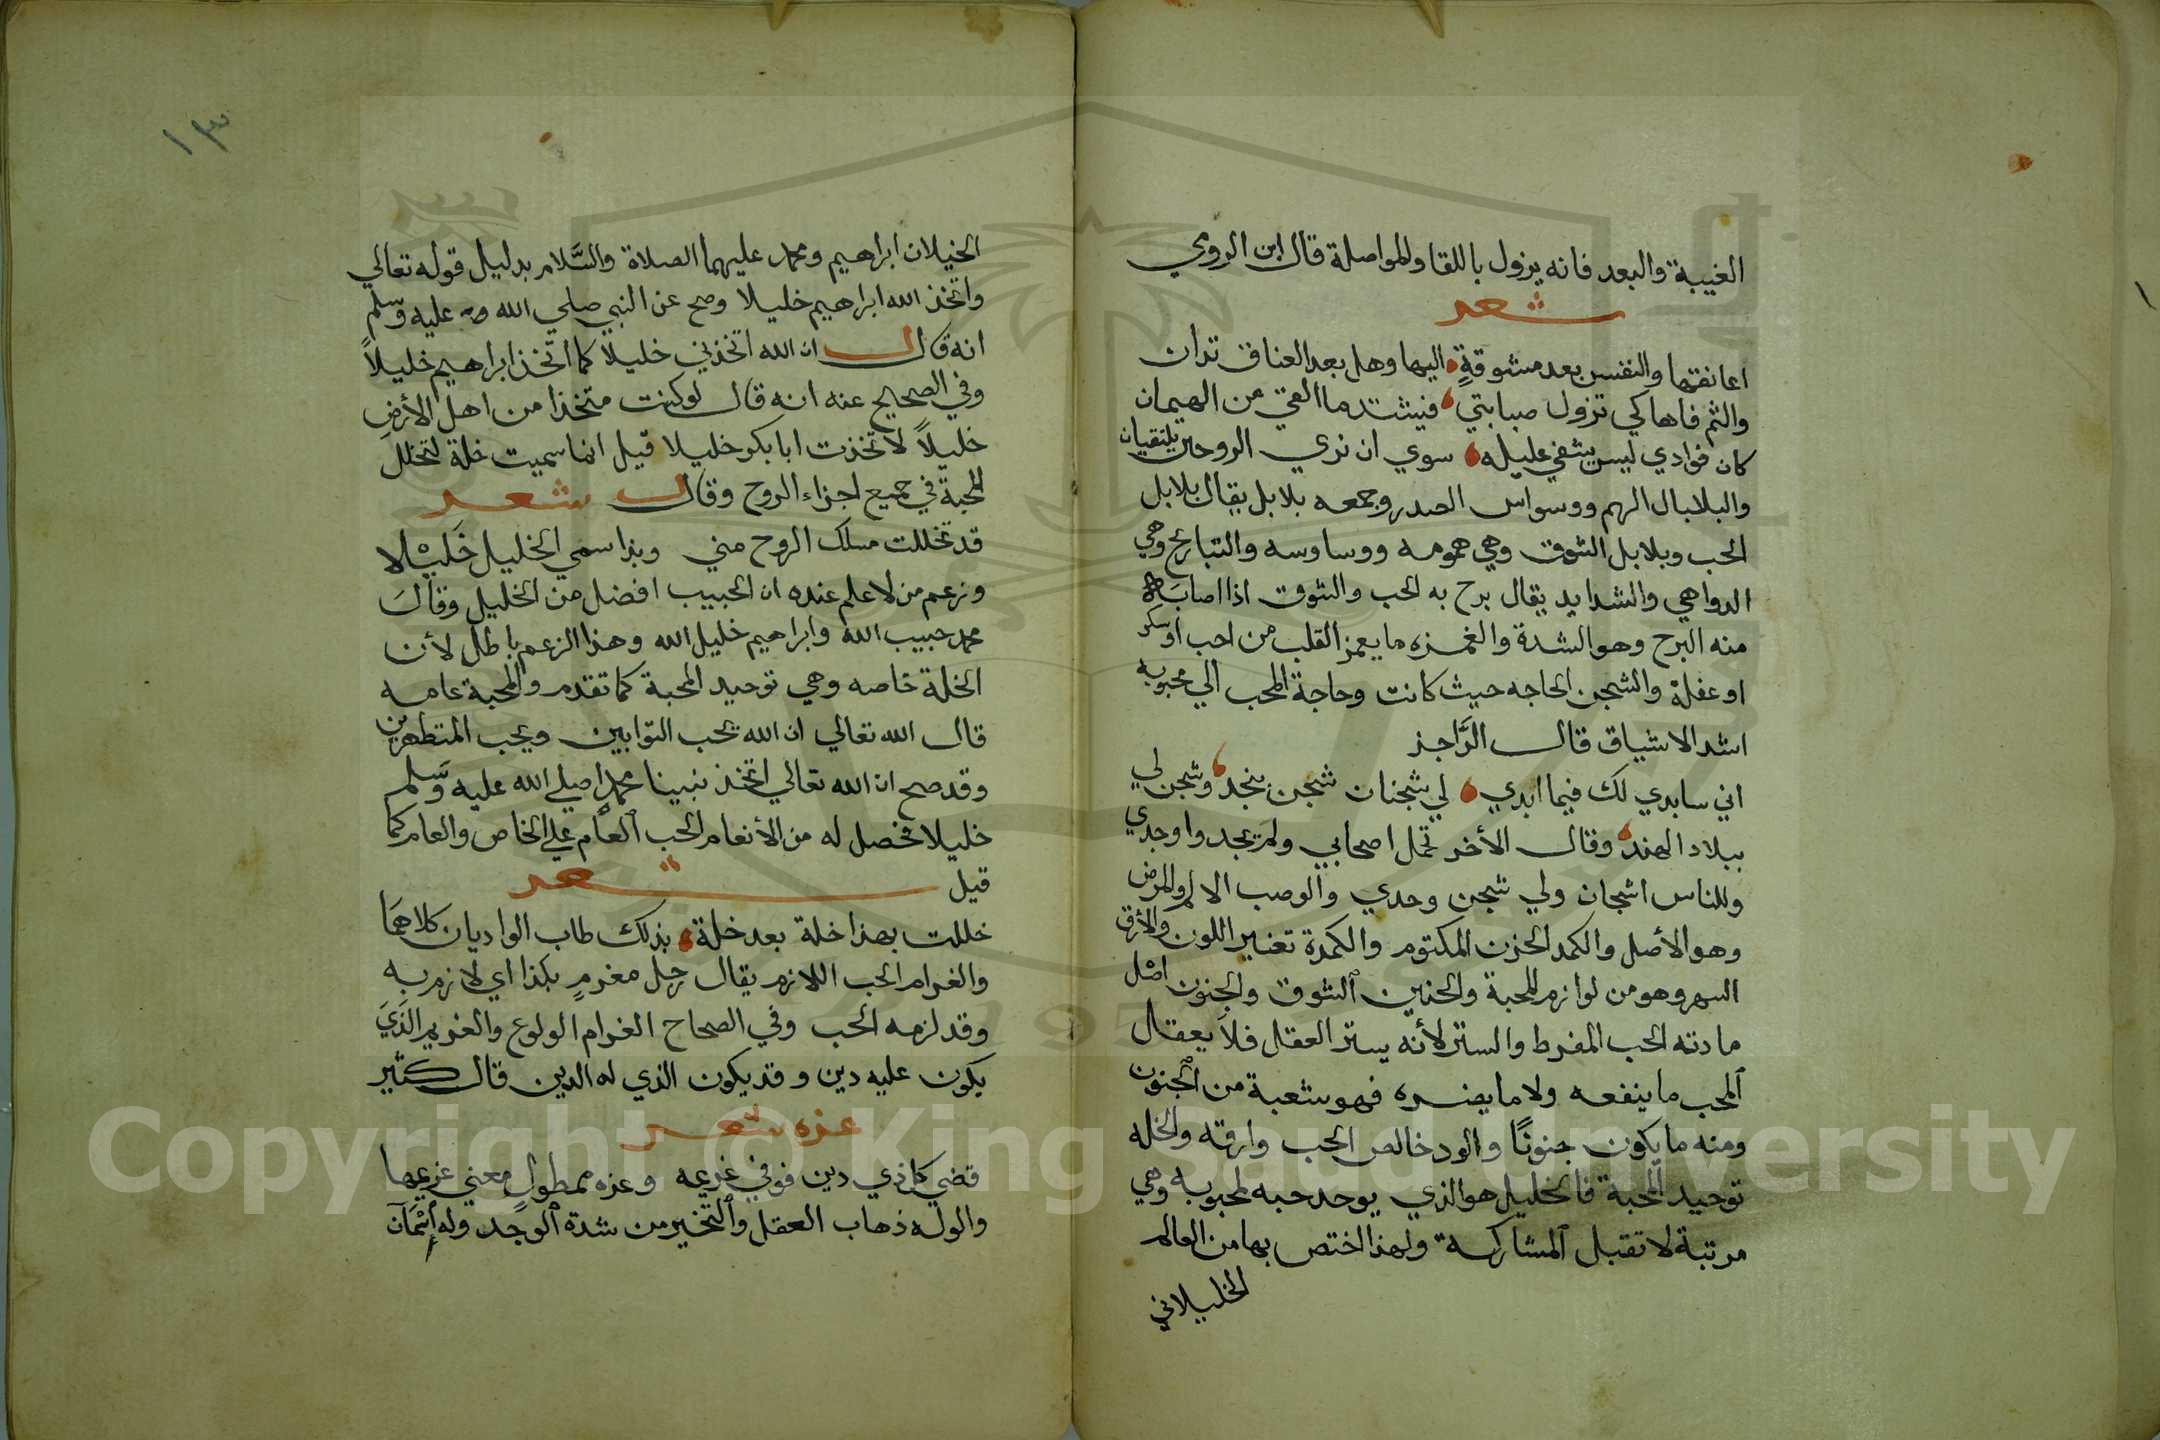 الغيبة والبعد فانه يزول باللقا والمواصلة قال ابن الرومي
شعر
اعانقها والنفس بعد مشوقةٍ اليها وهل بعد العناق تدان
والثم فاها كي تزول صبابتي فيشتد ما القي من الهيمان
كان فوادي ليس يشفي غليله سوي ان نري الروحين يلتقيان
والبلابال الهم ووسواس الصدر وجمعه بلابل يقال بلابل
الحب وبلابل الشوق وهي همومه ووساوسه والتباريح وهي
الدواهي والشدايد يقال برح به الحب والشوق اذا اصابه
منه البرح وهو الشدة والغمزه ما يعمز القلب من احب او سكر
او عفلة والشجن الحاجه حيث كانت وحاجة المحب الي محبوبه
اشد الاشياق قال الرَّاجز
اني سابدي لك فيما ابدي لي شجنان شجن بنجد وشجن لي
ببلاد الهند وقال الأخر تحمل اصحابي ولم يجدوا وجدي
وللناس اشجان ولي شجن وحدي والوصب الالم والمرض
وهو الأصل والكمد الحزن المكتوم والكمدة تغير اللون والأرق
السهر وهو من لوازم المحبة والحنين الشوق والجنون اصل
مادته الحب المفرط والستر لأنه يستر العقل فلا يعقال
المحب ما ينفعه ولا ما يضره فهو شعبة من الجنون
ومنه ما يكون جنونًا والود خالص الحب وارقه والخله
توحيد المحبة فالخليل هو الذي يوحد حبه لمحبوبه وهي
مرتبة لا تقبل المشاركة ولهذا اختص بها من العالم
الخليلاني
١٣
الخيلان ابراهيم ومحمد عليهما الصلاة والسَّلام بدليل قوله تعالي
واتخذ الله ابراهيم خليلا وصح عن النبي صلي الله عليه وسلم
انه قال ان الله اتخذني خليلا كما اتخذ ابراهيم خليلاً
وفي الصحيح عنه انه قال لو كنت متخذا من اهل الأرض
خليلاً لاتخذت ابا بكر خليلا قيل انما سميت خلة لتخلل
المحبة في جميع اجزاء الروح وقال شعر
قد تخللت مسلك الروح مني وبذا سمي الخليل خَليْلا
وزعم من لا علم عنده ان الحبيب افضل من الخليل وقالَ
محمد حبيب الله وابراهيم خليل الله وهذا الزعم باطل لأن
الخلة خاصه وهي توحيد المحبة كما تقدم والمحبة عامه
قال الله تعالي ان الله يحب التوابين ويحب المتطهرين
وقد صح ان الله تعالي اتخذ نبينا محمدا صلي الله عليه وسلم
خليلا فحصل له من الأنعام الحب العام علي الخاص والعام كما
قيل شعر
خللت بهذا خلة بعد خلة بذلك طاب الواديان كلاهما
والغرام الحب اللازم يقال رجل مغرمٍ بكذا اي لازم به
وقد لزمه الحب وفي الصحاح الغرام الولوع والغريم الَذَيَ
يكون عليه دين وقد يكون الذي له الدين قال كثير
عزه شعر
قضي كل ذي دين فوفي غريمه وعزه ممطولٍ معني غريمها
والوله ذهاب العقل والتخير من شدة الوجد وله